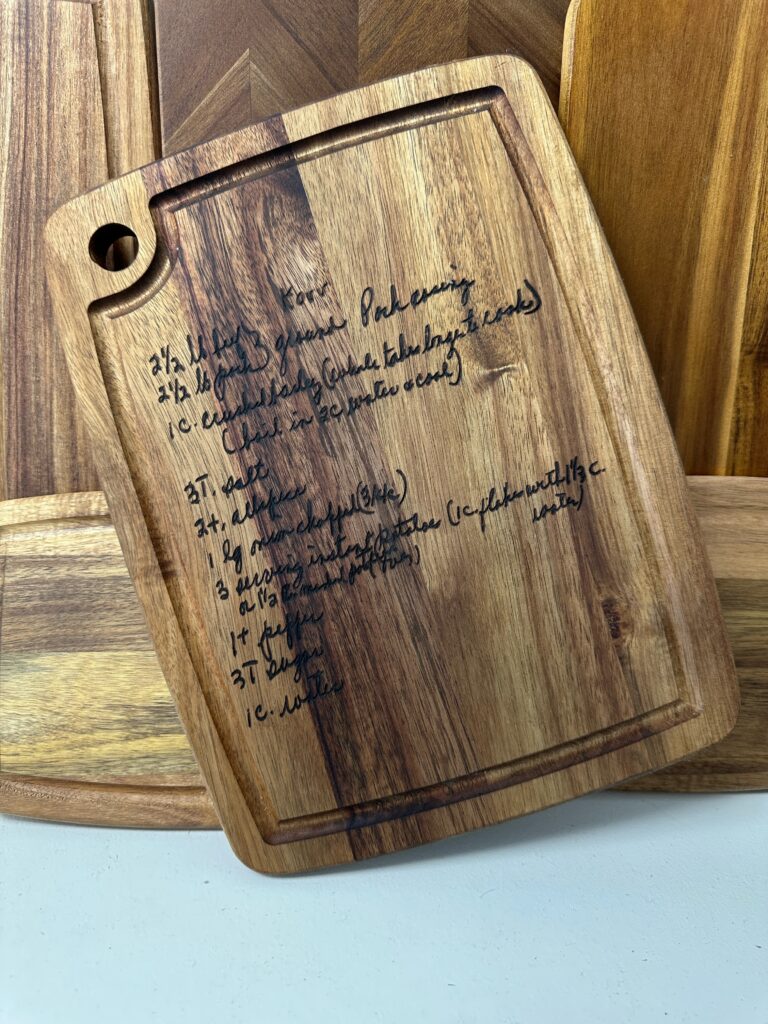 Korv
2½ lb beef } ground Pork casing
2½ lb pork
1 c. crushed barley (whole takes longer to cook)
(boil in 2c. water & cool)
3T. salt
2t. allspice
1 lg onion chopped (3/4c)
3 serving instant potatoes (1c. flakes with 1⅓ c. water)
or 1½ c. mashed potatoes
1t pepper
3T sugar
1c. water